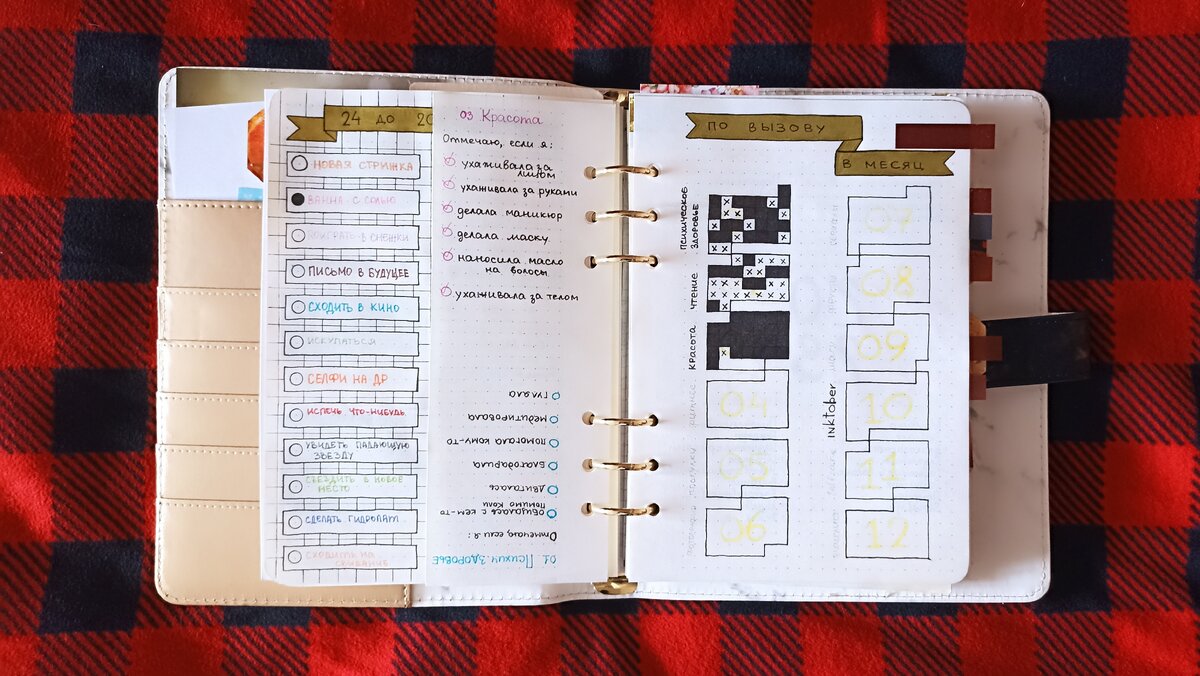 24 ДО
НОВАЯ СТРИЖКА
ВАННА С СОЛЬЮ
ПОИГРАТЬ В СНЕЖКИ
ПИСЬМО В БУДУЩЕЕ
СХОДИТЬ В КИНО
ИСКУПАТЬСЯ
СЕЛФИ НА ДР
ИСПЕЧЬ ЧТО-НИБУДЬ
УВИДЕТЬ ПАДАЮЩУЮ
ЗВЕЗДУ
СЪЕЗДИТЬ В НОВОЕ
МЕСТО
СДЕЛАТЬ ГИДРОЛАТ
СХОДИТЬ НА
03 Красота
Отмечаю, если я:
ухаживала за
лицом
ухаживала за руками
делала маникюр
делала маску
наносила масло
на волосы
ухаживала за телом
01 Психич ЗДОРОВЬЕ
Отмечаю, если я:
общалась с кем-то
помимо Коли
двигалась
благодарила
помогала кому-то
медитировала
гуляла
ПО ВЫЗОВУ
В МЕСЯЦ
ПСИХИЧЕСКОЕ
ЗДОРОВЬЕ
ЧТЕНИЕ
КРАСОТА
04
05
06
07
08
09
inktober
10
11
12